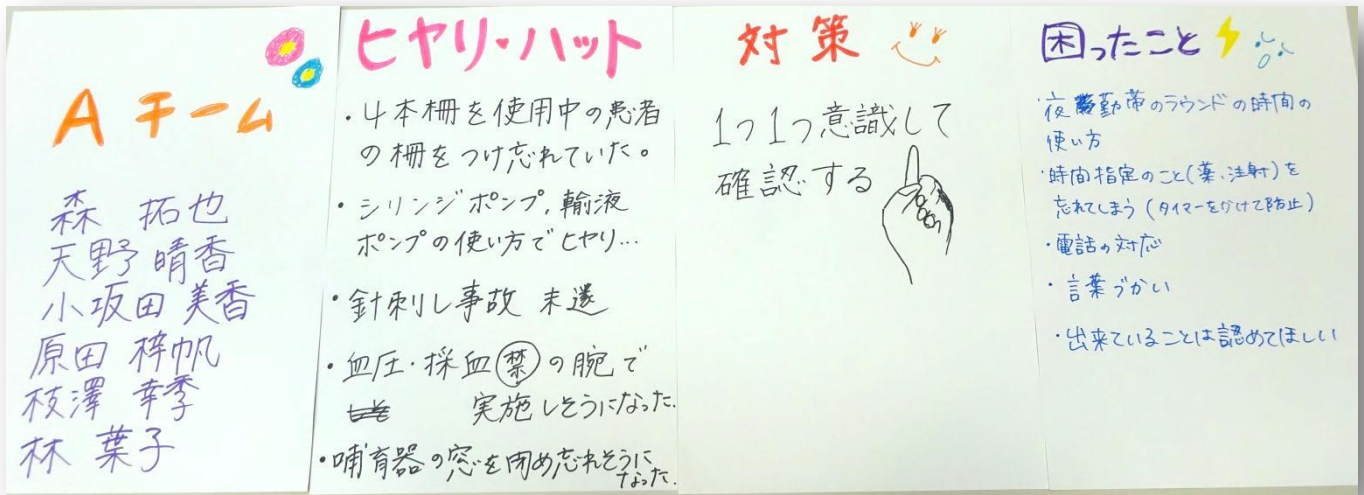 Aチーム
森 拓也
天野 晴香
小坂田 美香
原田 梓帆
枝澤 幸季
林 葉子
ヒヤリ・ハット
・4本柵を使用中の患者
の柵をつけ忘れていた。
・シリンジポンプ,輸液
ポンプの使い方でヒヤリ…
・針刺し事故 未遂
・血圧・採血禁の腕で
実施しそうになった.
・哺育器の窓を閉め忘れそうに
なった.
対策
1つ1つ意識して
確認する
困ったこと
・夜勤帯のラウンドの時間の
使い方
・時間指定のこと(薬、注射)を
忘れてしまう(タイマーをかけて防止)
・電話の対応
・言葉づかい
・出来ていることは認めてほしい